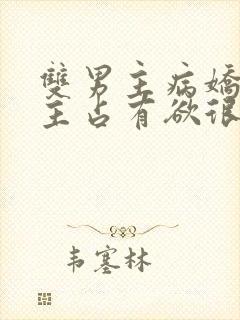 雙男主病嬌
主占有欲很
韦塞林